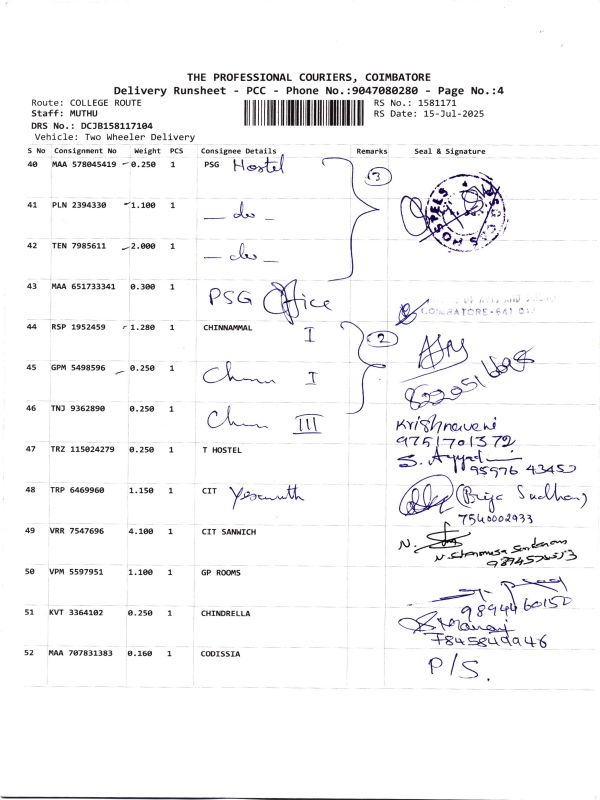 THE PROFESSIONAL COURIERS, COIMBATORE
Delivery Runsheet - PCC - Phone No.:9047080280 - Page No.:4
Route: COLLEGE ROUTE
Staff: MUTHU
DRS No.: DCJB158117104
Vehicle: Two Wheeler Delivery
RS No.: 1581171
RS Date: 15-Jul-2025
S No Consignment No Weight PCS Consignee Details Remarks Seal & Signature
40 MAA 578045419 0.250 1 PSG Hostel 3
41 PLN 2394330 1.100 1 — do —
42 TEN 7985611 2.000 1 — do —
43 MAA 651733341 0.300 1 PSG Office
COIMBATORE-641
44 RSP 1952459 1.280 1 CHINNAMMAL I 2
45 GPM 5498596 0.250 1 I
46 TNJ 9362890 0.250 1 III Krishnaveni
9751701372
47 TRZ 115024279 0.250 1 T HOSTEL S.
95976 43450
48 TRP 6469960 1.150 1 CIT
7540002933
49 VRR 7547696 4.100 1 CIT SANWICH N.
50 VPM 5597951 1.100 1 GP ROOMS
9894460150
51 KVT 3364102 0.250 1 CHINDRELLA
7845849946
52 MAA 707831383 0.160 1 CODISSIA P/S.